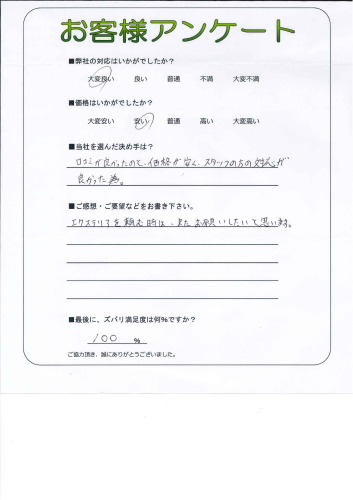 お客様アンケート
■弊社の対応はいかがでしたか？
大変良い 良い 普通 不満 大変不満
■価格はいかがでしたか？
大変安い 安い 普通 高い 大変高い
■当社を選んだ決め手は？
口コミが良かったので、価格が安く、スタッフの方の対応が
良かった為。
■ご感想・ご要望などをお書き下さい。
エクステリアを頼む時は、またお願いしたいと思います。
■最後に、ズバリ満足度は何%ですか？
100 %
ご協力頂き、誠にありがとうございました。